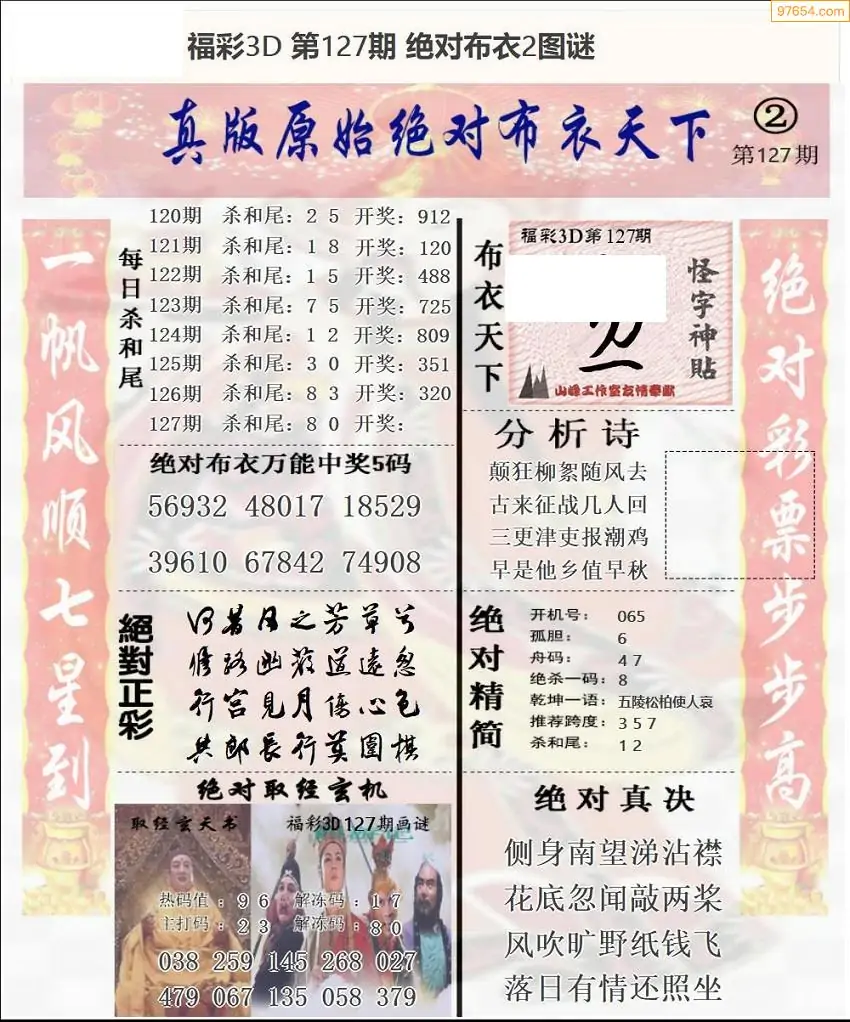 97654.com
福彩3D 第127期 绝对布衣2图谜
真版原始绝对布衣天下
②
第127期
一帆风顺七星到
每日杀和尾
120期 杀和尾：2 5 开奖：912
121期 杀和尾：1 8 开奖：120
122期 杀和尾：1 5 开奖：488
123期 杀和尾：7 5 开奖：725
124期 杀和尾：1 2 开奖：809
125期 杀和尾：3 0 开奖：351
126期 杀和尾：8 3 开奖：320
127期 杀和尾：8 0 开奖：
绝对布衣万能中奖5码
56932 48017 18529
39610 67842 74908
絕對正彩
何昔日之芳草兮
修路幽蔽道遠忽
行宫見月傷心色
共郎長行莫圍棋
绝对取经玄机
取经玄天书
福彩3D127期画谜
热码值：9 6 解冻码：1 7
主打码：2 3 解冻码：8 0
038 259 145 268 027
479 067 135 058 379
布衣天下
福彩3D第127期
怪字神貼
山峰工作室友情奉献
分析诗
颠狂柳絮随风去
古来征战几人回
三更津吏报潮鸡
早是他乡值早秋
绝对精简
开机号： 065
孤胆： 6
舟码： 4 7
绝杀一码：8
乾坤一语：五陵松柏使人哀
推荐跨度：3 5 7
杀和尾： 1 2
绝对真决
侧身南望涕沾襟
花底忽闻敲两桨
风吹旷野纸钱飞
落日有情还照坐
绝对彩票步步高